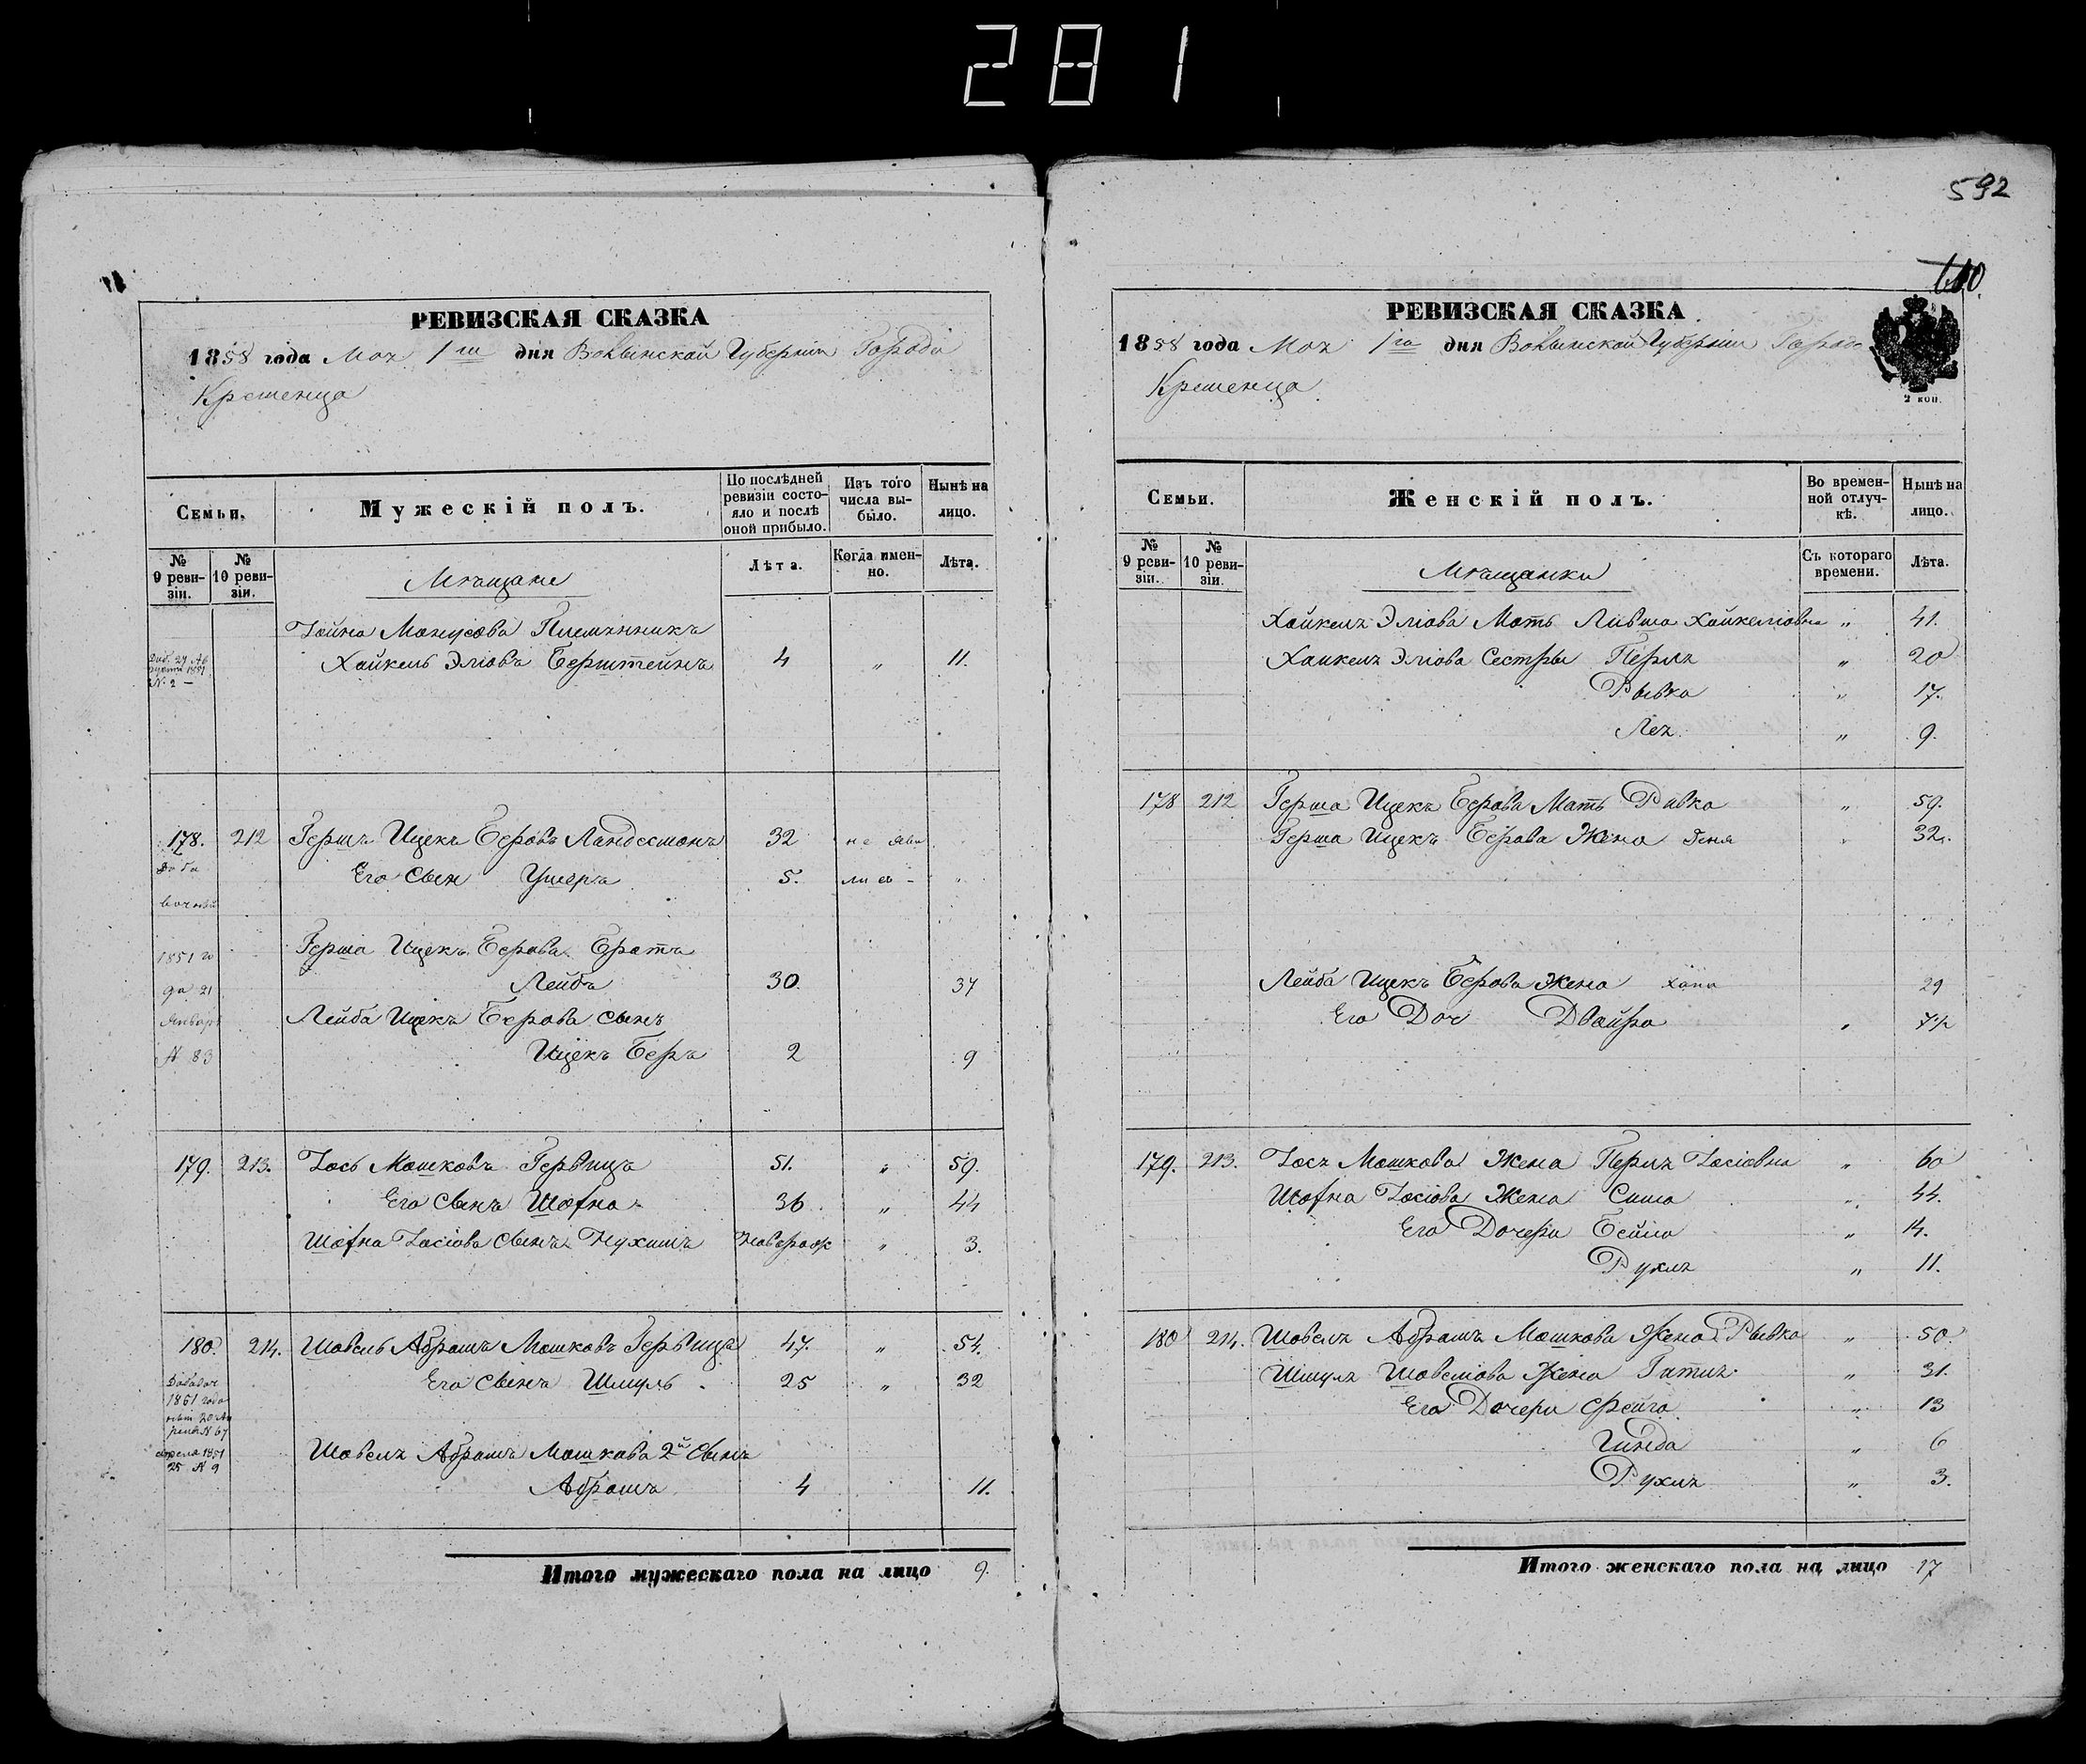 281
592
110.
РЕВИЗСКАЯ СКАЗКА
1858 года Мая 1го дня Волынской Губерніи Города
Кременца
Семьи.
Мужескій полъ.
По послѣдней ревизіи состояло и послѣ оной прибыло.
Изъ того числа выбыло.
Нынѣ на лицо.
№ 9 ревизіи.
№ 10 ревизіи.
Мѣщане
Лѣта.
Когда именно.
Лѣта.
Племянникъ
Хайкель Эліовъ Берштейнъ 4 „ 11.
178. 212 Гершъ Ицекъ Беровъ Ландесманъ 32 не яви
Его Сынъ Ушеръ 5. лись -
Герша Ицекъ Берова Братъ
1851 го
Лейба 30. 37
да 21
Лейба Ицекъ Берова сынъ
Январь
Ицекъ Беръ 2 9
№ 83
179. 213. Іось Мошковъ Гервицъ 51. „ 59.
Его Сынъ Шофна 36 „ 44
Шофна Іосіова Сынъ Нухимъ „ 3.
180. 214. Шовель Абрамъ Мошковъ Гервицъ 47. „ 54.
Его Сынъ Шмуль 25 „ 32
Шовеля Абрамъ Мошкова 2й Сынъ
Абрамъ 4 11.
Итого мужескаго пола на лицо 9.
РЕВИЗСКАЯ СКАЗКА
1858 года Мая 1го дня Волынской Губерніи Города
Кременца
2 коп.
Семьи.
Женскій полъ.
Во временной отлучкѣ.
Нынѣ на лицо.
№ 9 ревизіи.
№ 10 ревизіи.
Мѣщанки
Съ котораго времени.
Лѣта.
Хайкеля Эліова Мать Ливша Хайкеліовна „ 41.
Хайкеля Эліова Сестры Перля „ 20
Рывка „ 17.
Лея „ 9.
178 212 Герша Ицекъ Берова Мать Ривка „ 59.
Герша Ицекъ Берова Жена Геня „ 32.
Лейба Ицекъ Берова Жена Хана 29
Его Доч Двойра
179. 213. Іося Мошкова Жена Перля Іосіовна „ 60
Шофна Іосіова Жена Сима „ 44.
Его Дочери Бейла „ 14.
Рухля „ 11.
180 214. Шовеля Абрамъ Мошкова Жена Рывка „ 50.
Шмуля Шовеліова Жена Гитля „ 31.
Его Дочери Фейга „ 13
Гинда „ 6
Рухля „ 3.
Итого женскаго пола на лицо 17